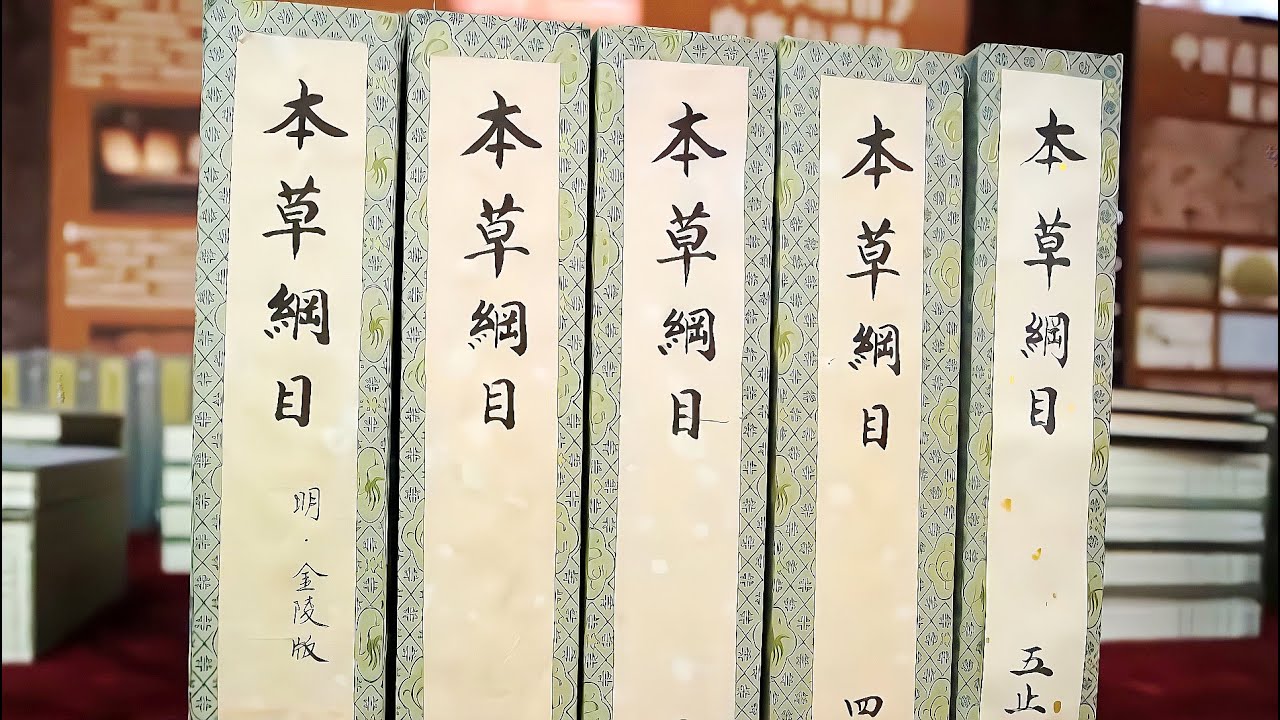 本草綱目
明·金陵版
本草綱目
本草綱目
本草綱目
四
本草綱目
五止